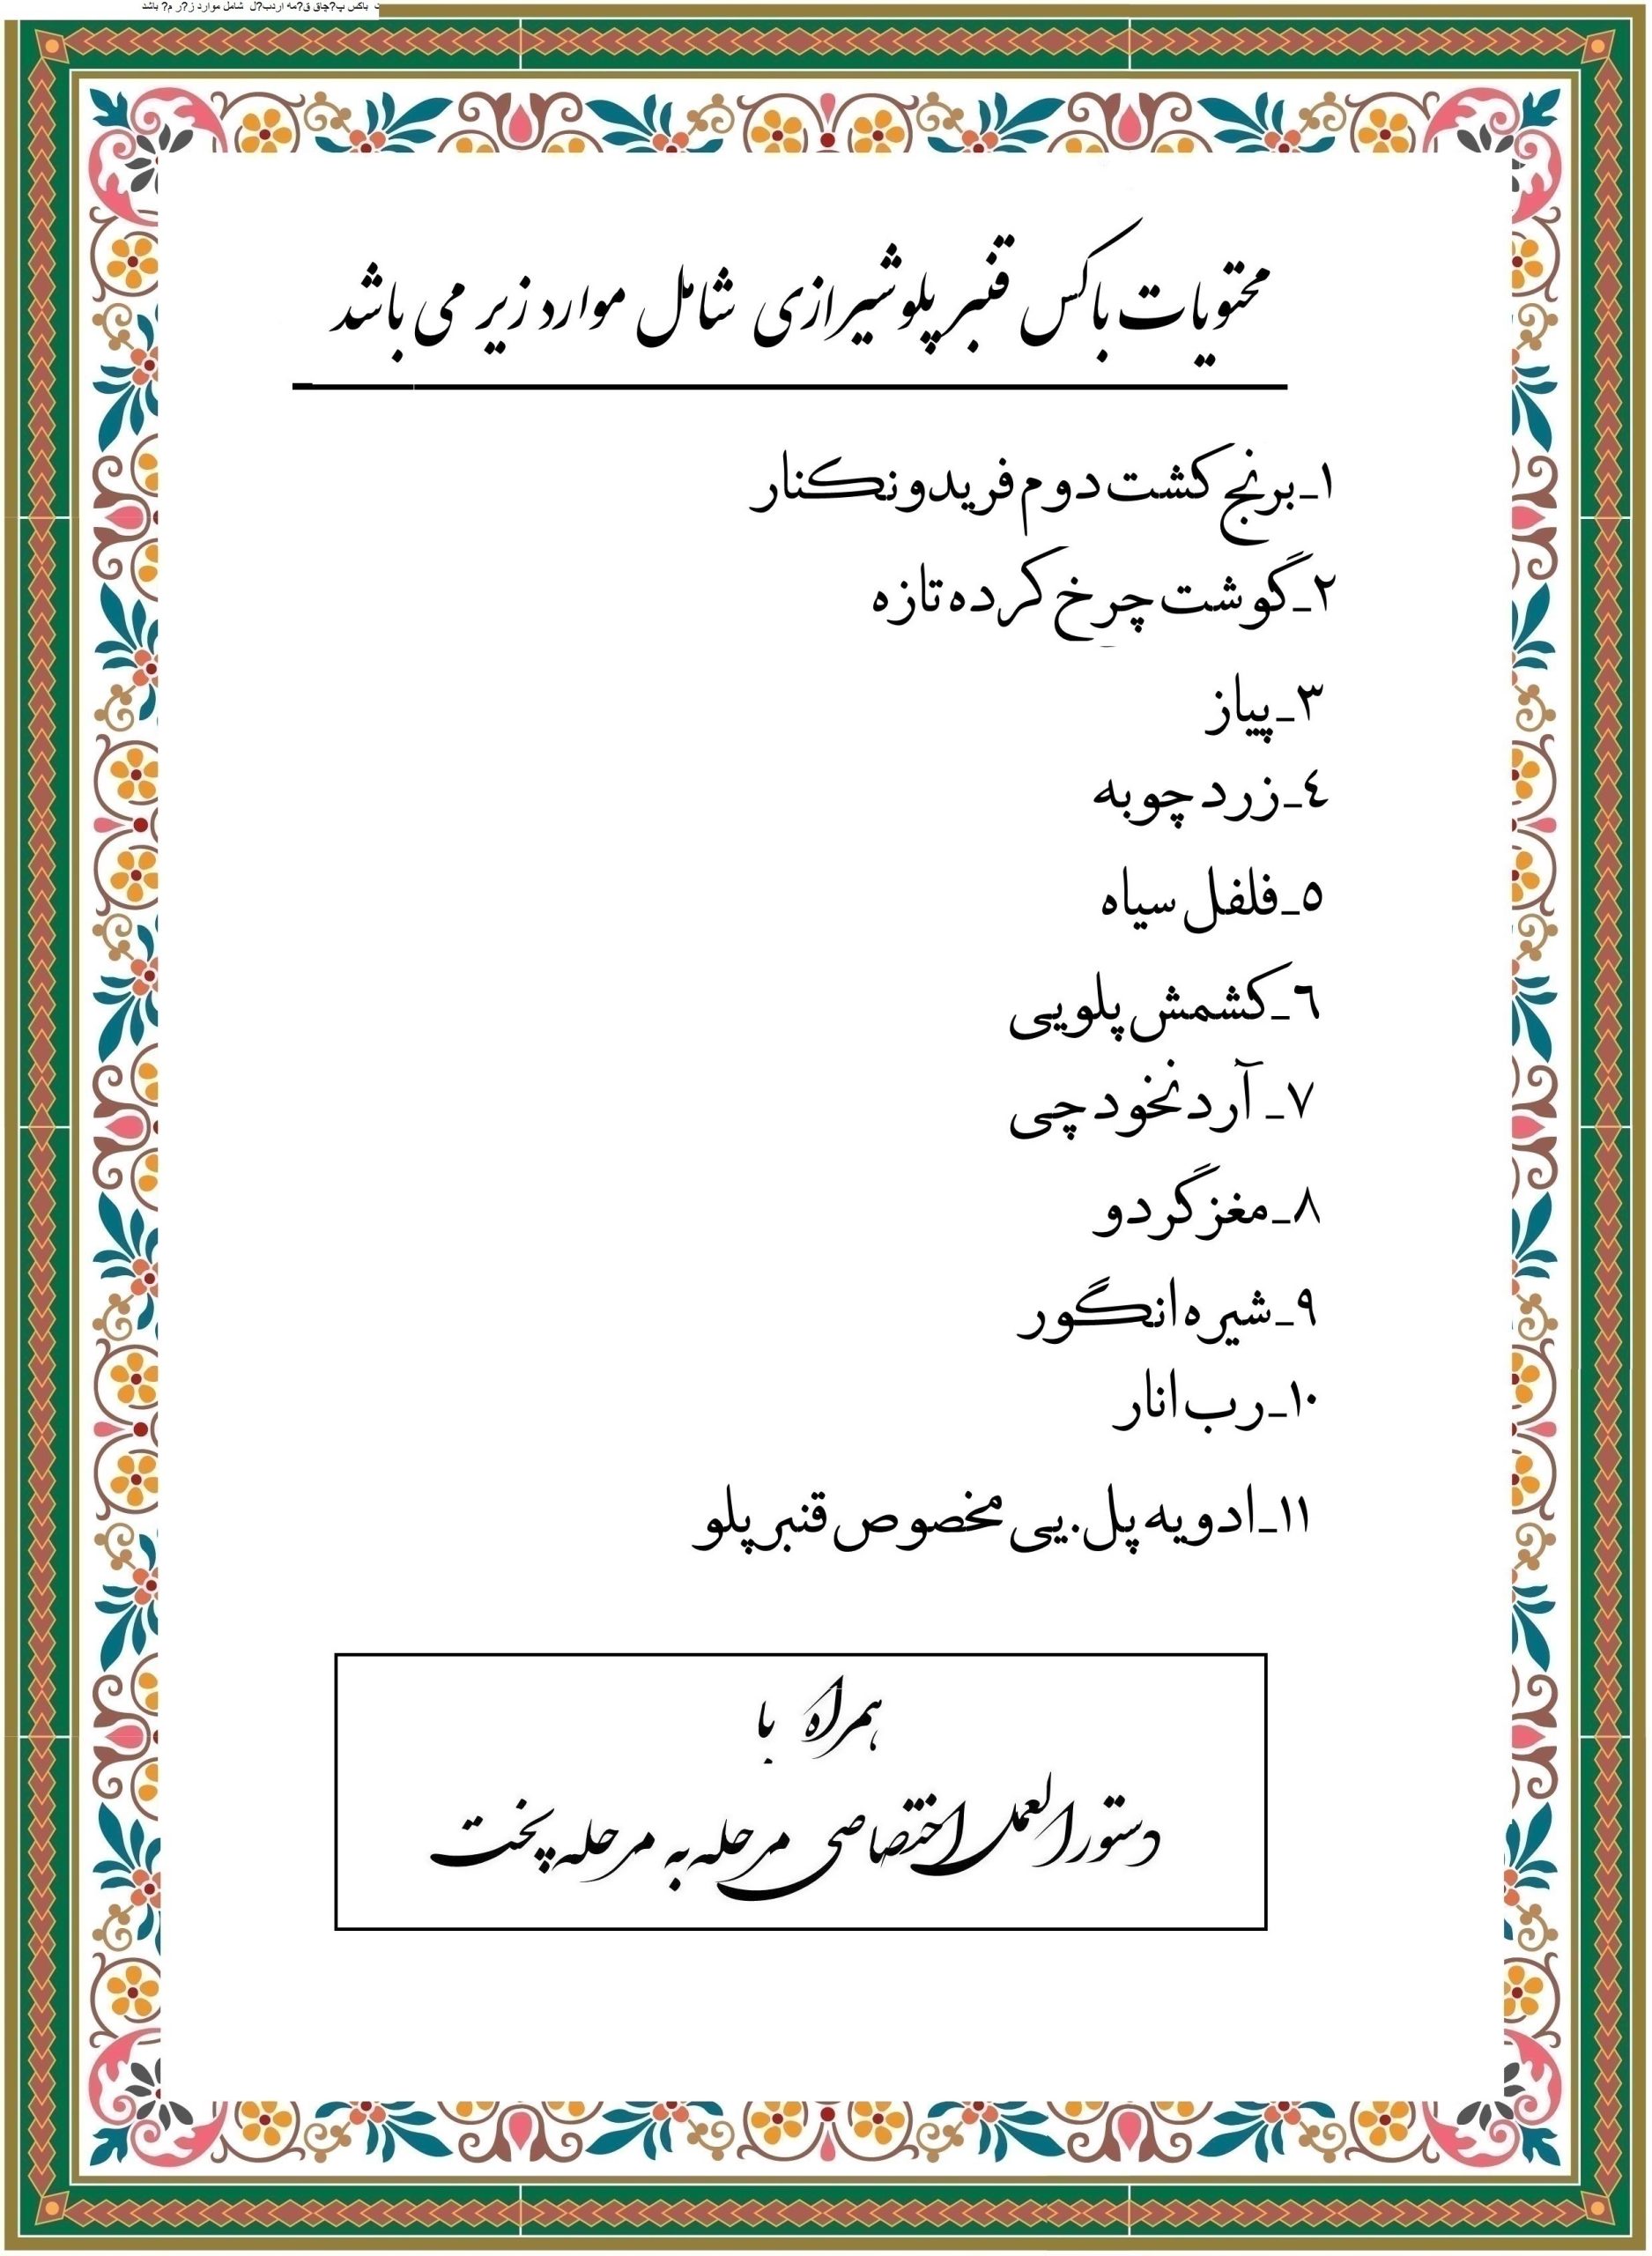 باکس پ?چاق ق?مه اردب?ل شامل موارد ز?ر م? باشد
محتویات باکس قنبر پلو شیرازی شامل موارد زیر می باشد
١_برنج کشت دوم فریدونکنار
٢_گوشت چرخ کرده تازه
٣_پیاز
٤_زردچوبه
٥_فلفل سیاه
٦_کشمش پلویی
٧_ آرد نخودچی
٨_مغز گردو
٩_شیره انگور
١٠_رب انار
١١_ادویه پل.یی مخصوص قنبر پلو
همراه با
دستورالعمل اختصاصی مرحله به مرحله پخت